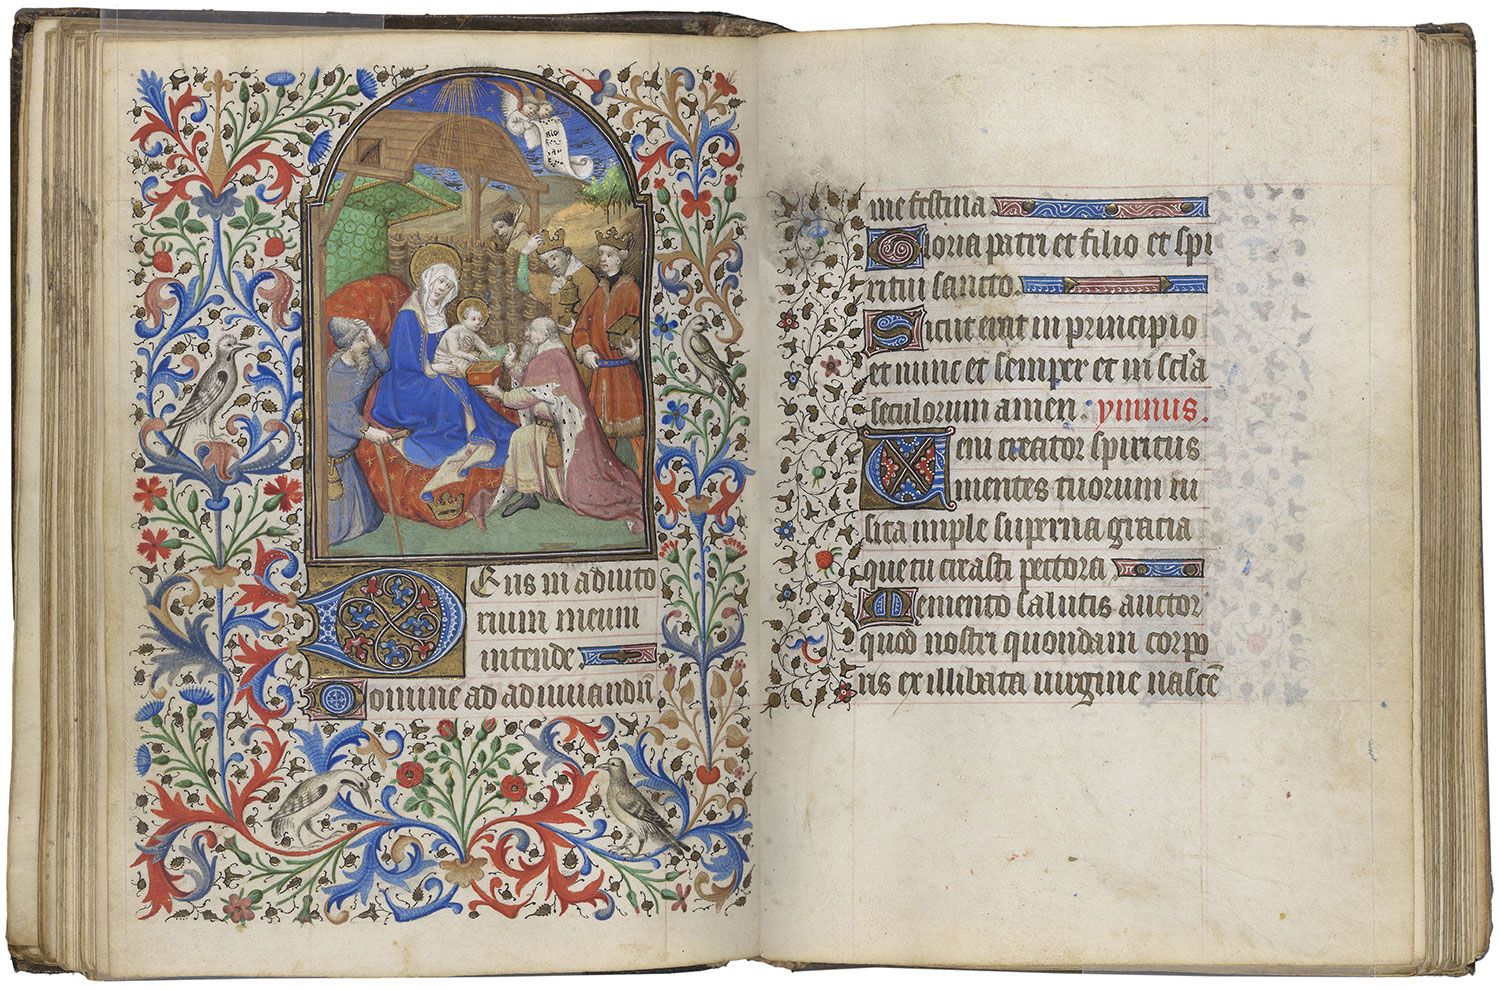 Glo
Deus in adiuto
rium meum
intende
Domine ad adiuuandū
me festina
Gloria patri et filio et spi
ritui sancto.
Sicut erat in principio
et nunc et semper et in sclā
seculorum amen. ymnus.
Ueni creator spiritus
mentes tuorum ui
sita imple superna gratia
que tu creasti pectora
Memento salutis auctor
quod nostri quondam corpo
ris ex illibata uirgine nascē